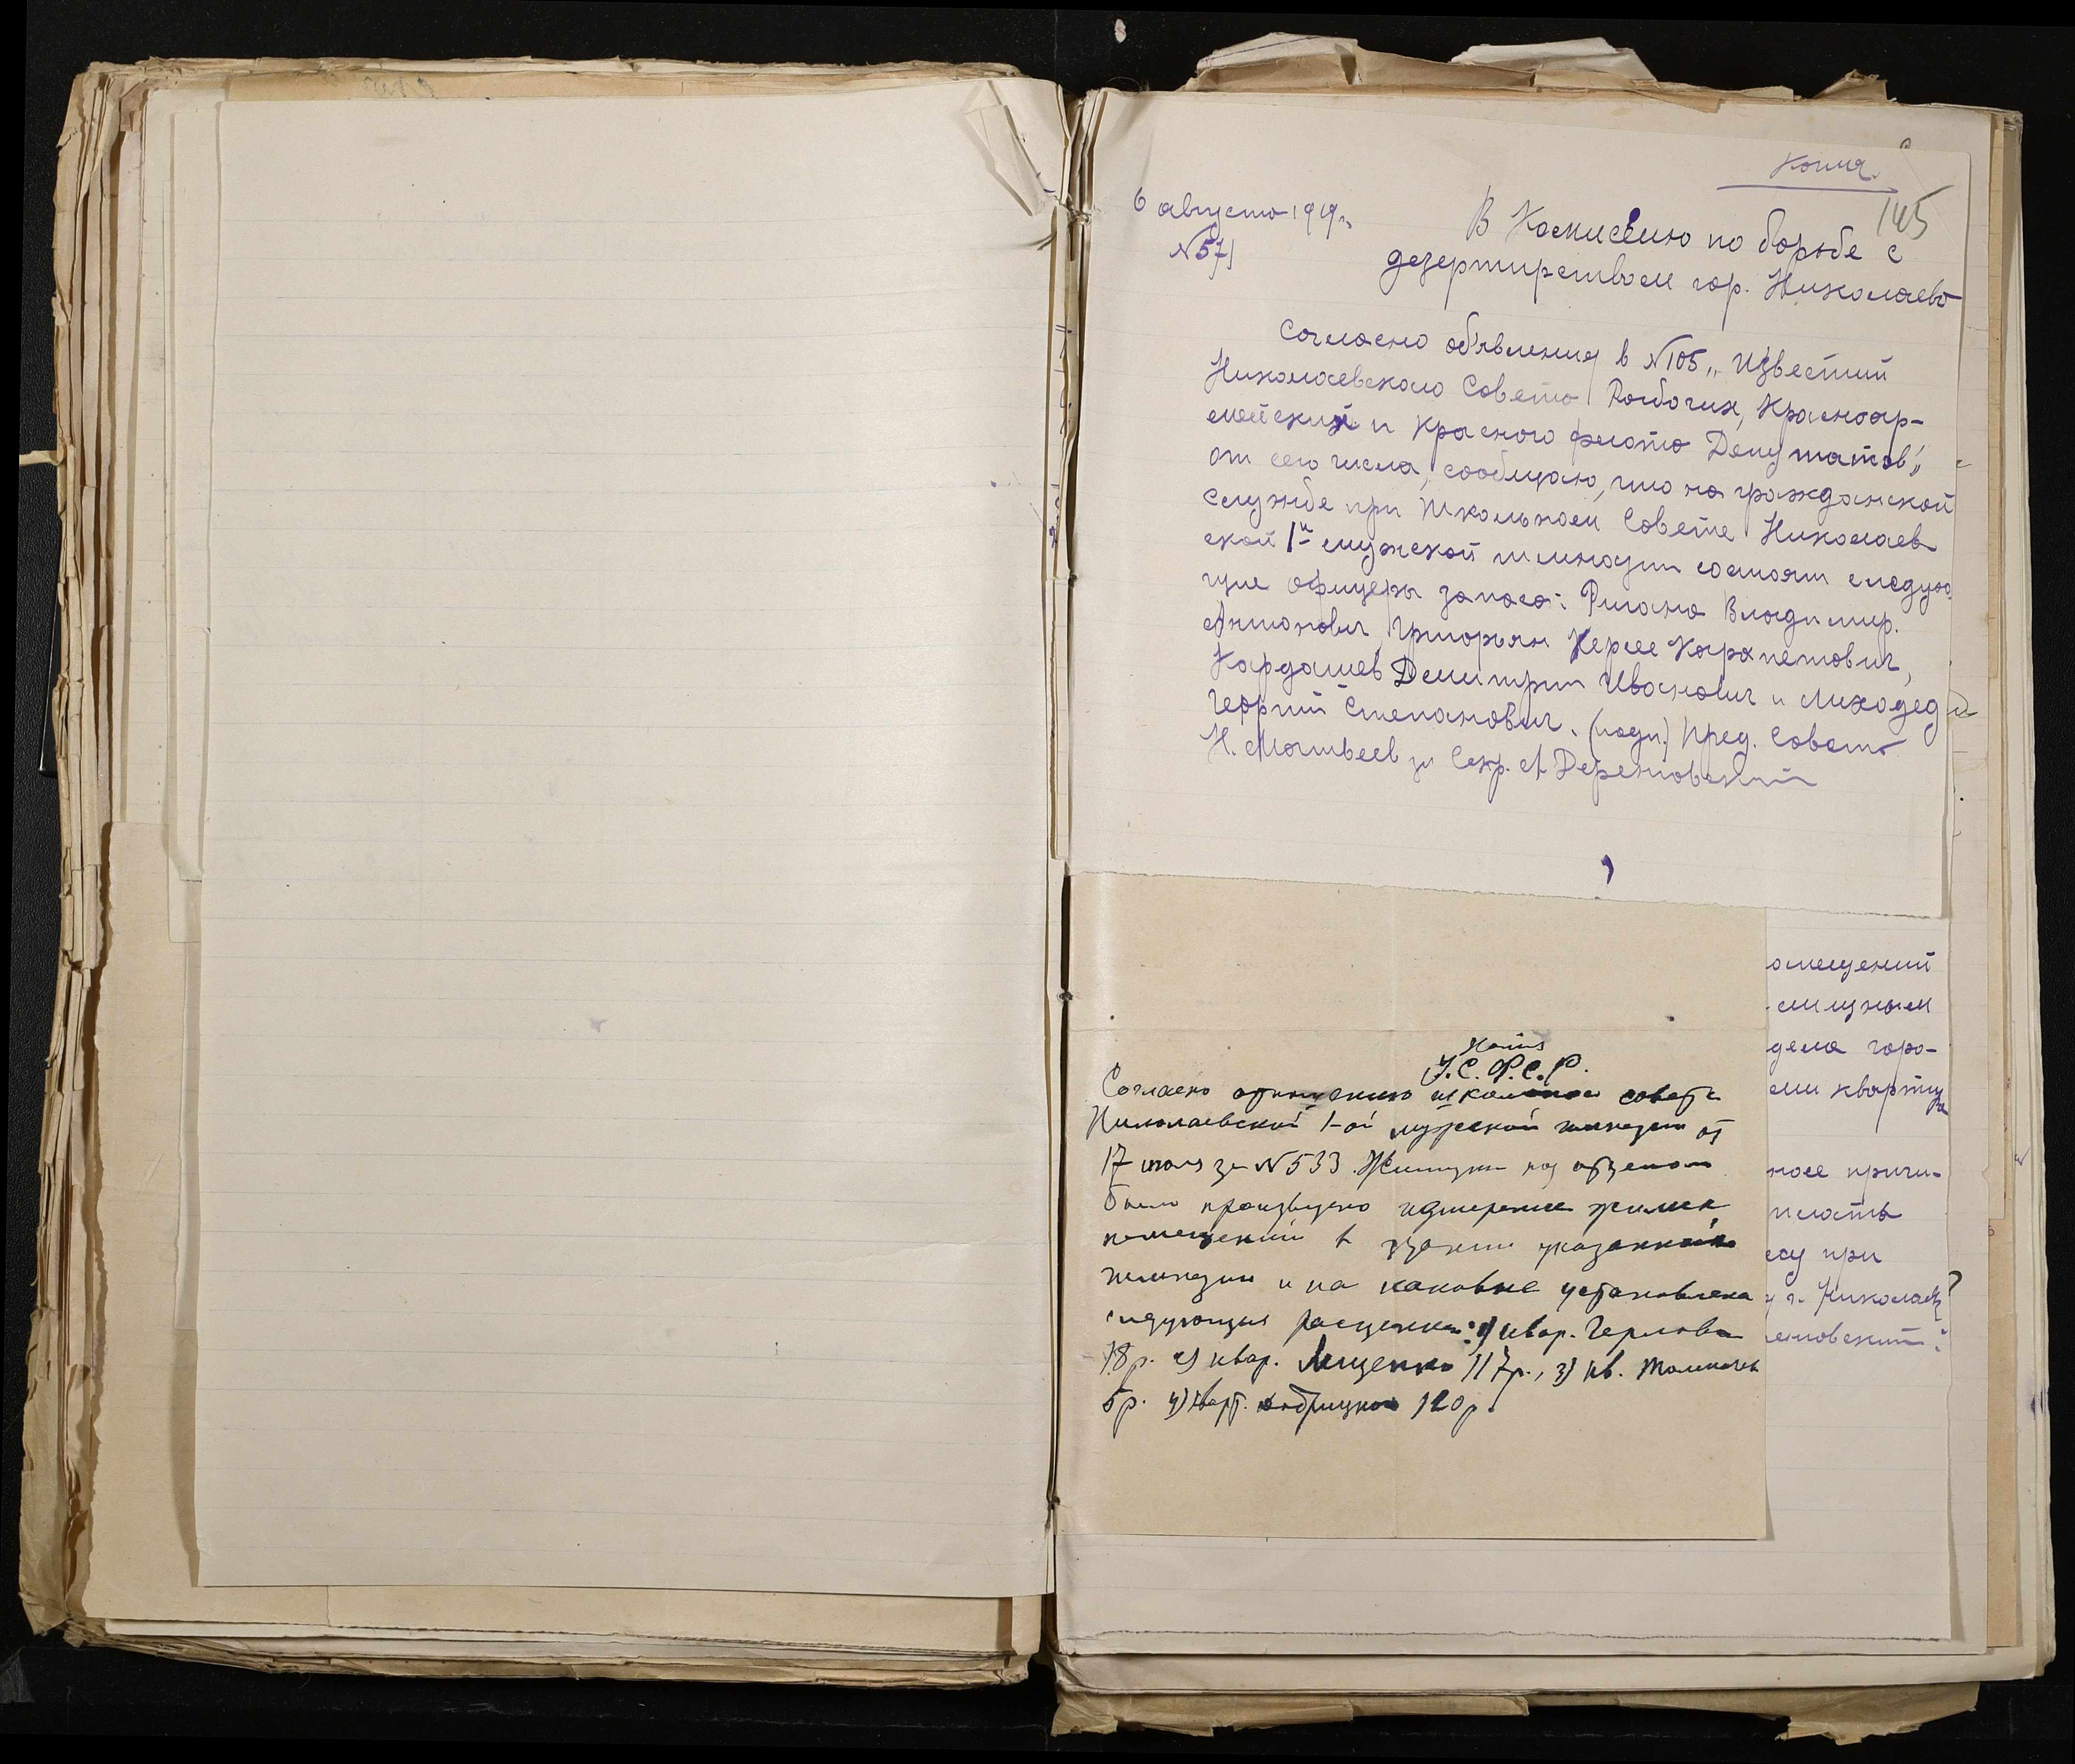 Копия.
145
6 августа 1919 г.
№ 571
В Комиссию по борьбе с
дезертирством гор. Николаева
Согласно об'явления в №105 „Известий
Николаевского Совета Рабочих, Красноар-
мейских и Красного флота Депутатов",
от сего числа, сообщаю, что на гражданской
службе при Школьном Совете Николаев
ской 1й мужской гимназии состоят следую
щие офицеры запаса: Владимир.
Антонович, Григорьян Нерсес Карапетович,
Кардашев Димитрий Иванович и Лиходед
Георгий Степанович. (подп.) Пред. Совета
Н. Матвеев Секр. А Дереновский
Копия
У.С.С.Р.
Согласно отношению школьного совета
Николаевской 1-ой мужской гимназии от
17 июля за №533. Жилищн под отделом
было произведено измерение жилых
помещений в здании указанной
гимназии и на каковые установлена
следующая расценка: 1) квар. Чернова
18р. 2) квар. Мищенко 117р., 3) кв.
5р. 4) кварт. 120р.
омещений
дела горо-
ми квартир
ное причи-
плать
есу при
г. Николаев
еновский